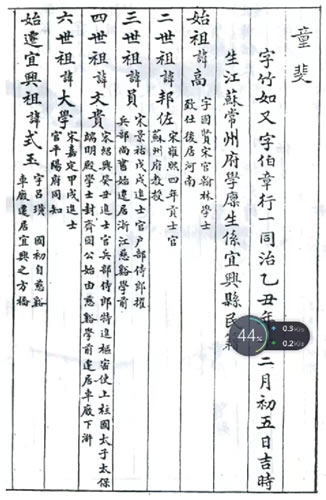 童斐
字竹如又字伯章行一同治乙丑年
二月初五日吉時
生江蘇常州府學廩生係宜興縣民
始祖諱高
字國賢宋官翰林學士
致仕後居河南
二世祖諱邦佐
宋雍熙四年貢士官
蘇州府教授
三世祖諱員
宋景祐戊戌進士官户部侍郎擢
兵部尚書始遷居浙江慈谿學前
四世祖諱文貴
宋紹興癸丑進士官兵部侍郎特進樞密使上柱國太子太保
端明殿學士封齊國公始由慈谿學前遷居車廄下滸
六世祖諱大學
宋嘉定甲戌進士
官平陽府同知
始遷宜興祖諱式玉
字呂璜 國初自慈谿
車廄遷居宜興之方橋
44%
0.3K/s
0.2K/s